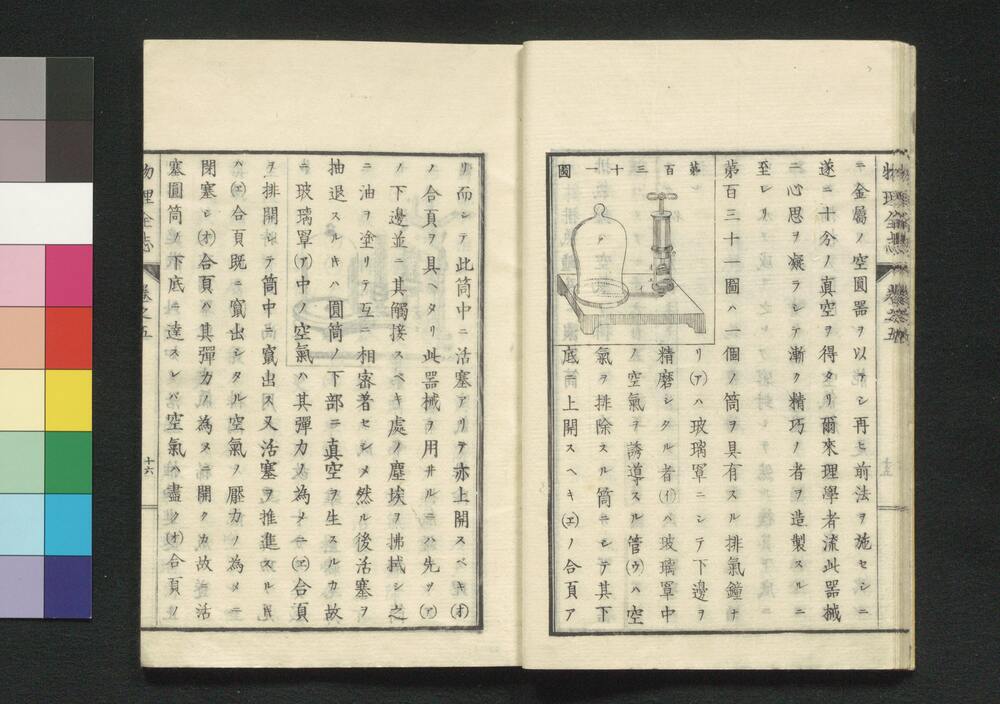 ニ金屬ノ空圓器ヲ以テシ再ヒ前法ヲ施セシニ
遂ニ十分ノ真空ヲ得タリ爾來理學者流此器械
ニ心思ヲ凝ラシテ漸ク精巧ノ者ヲ造製スルニ
至レリ
第百三十一圖ハ一個ノ筒ヲ具有スル排氣鐘ナ
第百三十一圖
リ(ア)ハ玻璃罩ニシテ下邊ヲ
精磨シタル者(イ)ハ玻璃罩中
ノ空氣ヲ誘導スル管(ウ)ハ空
氣ヲ排除スル筒ニシテ其下
底ニ上開スヘキ(エ)ノ合頁ア
物理全志 卷之五
十六
リ而シテ此筒中ニ活塞アリテ亦上開スベキ(オ)
ノ合頁ヲ具ヘタリ此器械ヲ用井ルニハ先ヅ(ア)
ノ下邊並ニ其觸接スベキ處ノ塵埃ヲ拂拭シ之
ニ油ヲ塗リテ互ニ相密著セシメ然ル後活塞ヲ
抽退スルキハ圓筒ノ下部ニ真空ヲ生スルカ故
ニ玻璃罩(ア)中ノ空氣ハ其彈力ノ為メニ(エ)合頁
ヲ排開シテ筒中ニ竄出ス又活塞ヲ推進スル𪜈
ハ(エ)合頁既ニ竄出シタル空氣ノ壓力ノ為メニ
閉塞シ(オ)合頁ハ其彈力ノ為メニ開クカ故ニ活
塞圓筒ノ下底ニ達スレバ空氣ハ盡ク(オ)合頁ノ